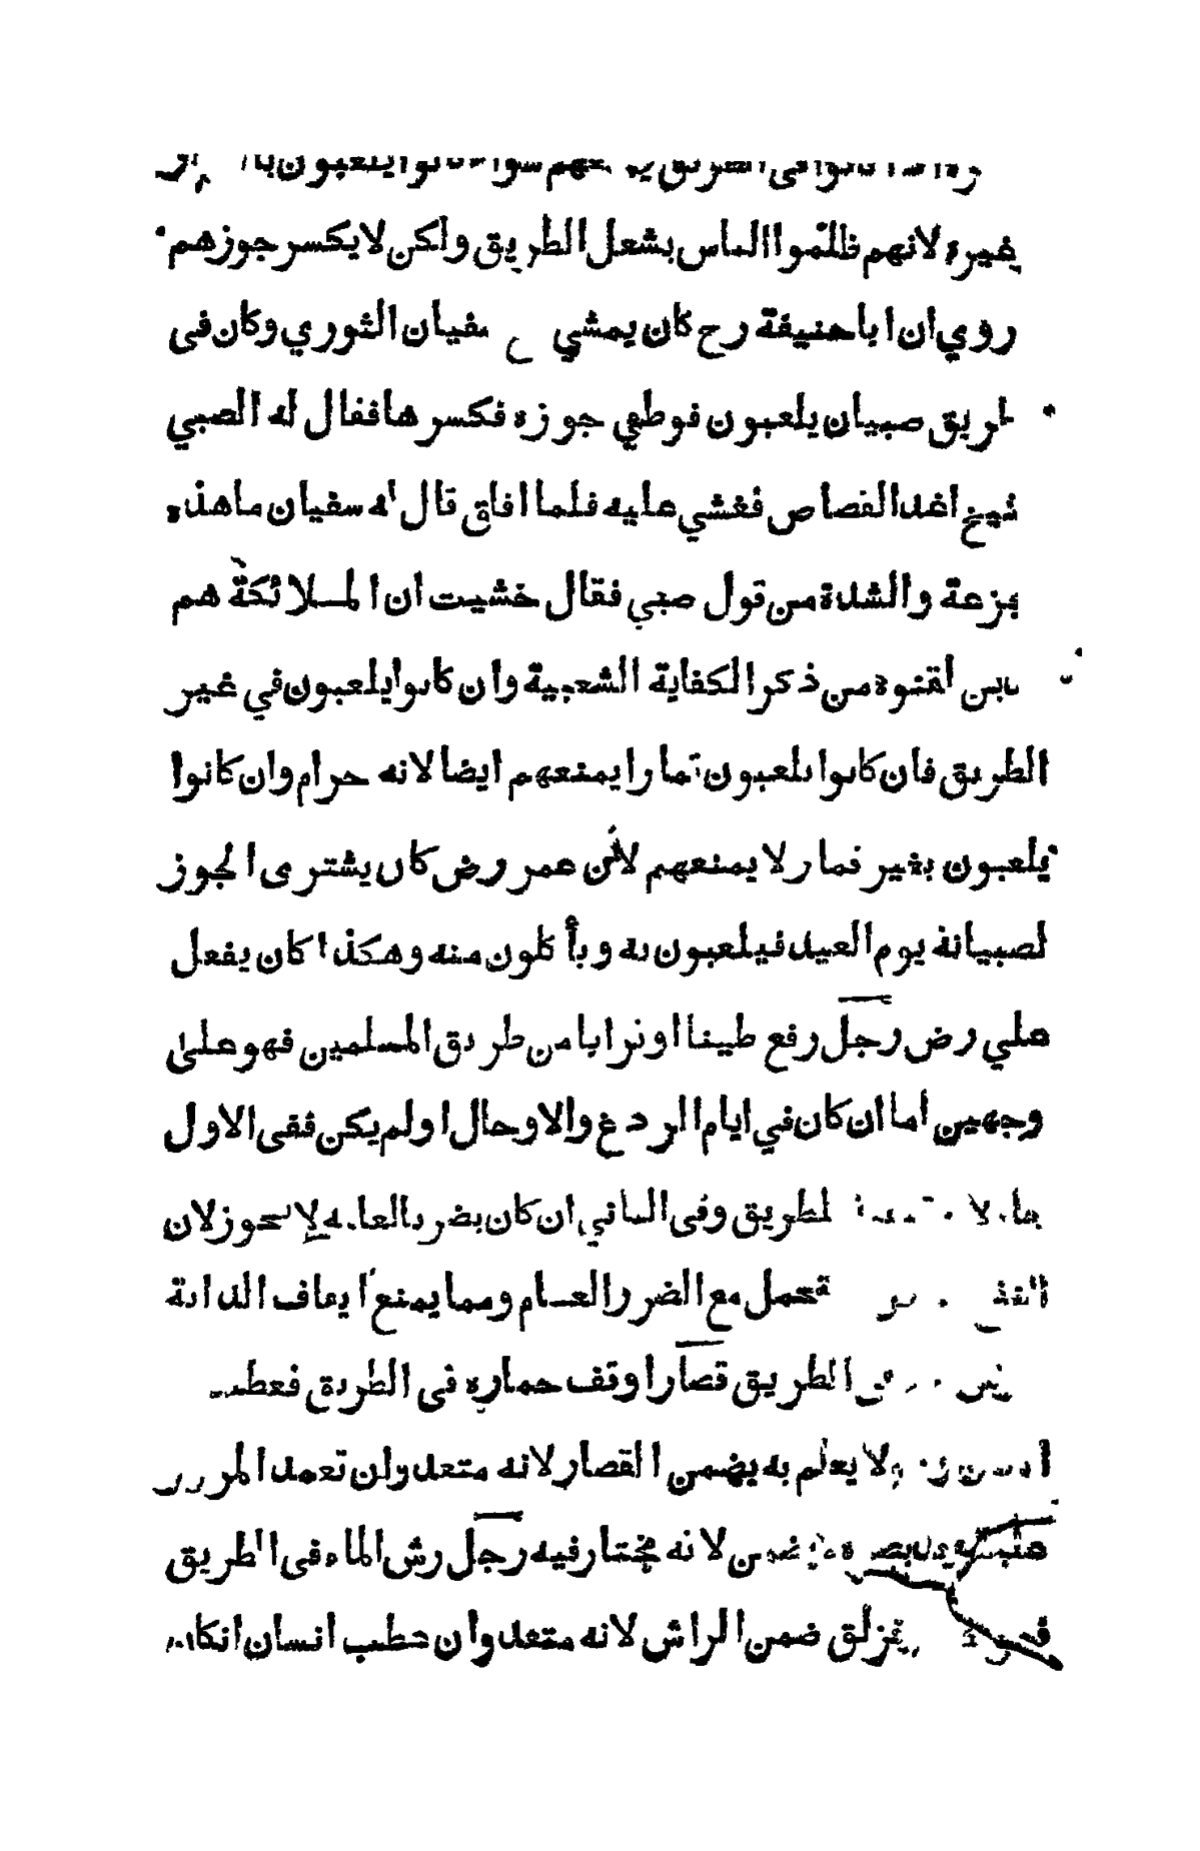 كانوا فى الطريق يمنعهم سواء كانوا يلعبون
بغيره لانهم ظلموا الناس بشغل الطريق ولكن لا يكسر جوزهم
روي ان ابا حنيفة رح كان يمشي سفيان الثوري وكان فى
طريق صبيان يلعبون فوطي جوزه فكسرها فقال له الصبي
شيخ اغدا القصاص فغشي عليه فلما افاق قال له سفيان ما هذه
والشدة من قول صبي فقال خشيت ان الملائكة هم
من ذكر الكفاية الشعبية وان كانوا يلعبون في غير
الطريق فان كانوا يلعبون قمارا يمنعهم ايضا لانه حرام وان كانوا
يلعبون بغير قمار لا يمنعهم لأن عمر رض كان يشترى الجوز
لصبيانه يوم العيد فيلعبون به ويأكلون منه وهكذا كان يفعل
علي رض رجل رفع طينا او ترابا من طريق المسلمين فهو على
وجهين أما ان كان في ايام الردغ والاوحال او لم يكن ففى الاول
الطريق وفى الثاني ان كان يضر بالعامه لا يجوز لان
تحمل مع الضرر العام ومما يمنع ايقاف الدابة
الطريق قصار اوقف حماره فى الطريق فعطب
ولا يعلم به يضمن القصار لانه متعد وان تعمد المرور
يضمن لانه مختار فيه رجل رش الماء فى الطريق
يزلق ضمن الراش لانه متعد وان عطب انسان انكان